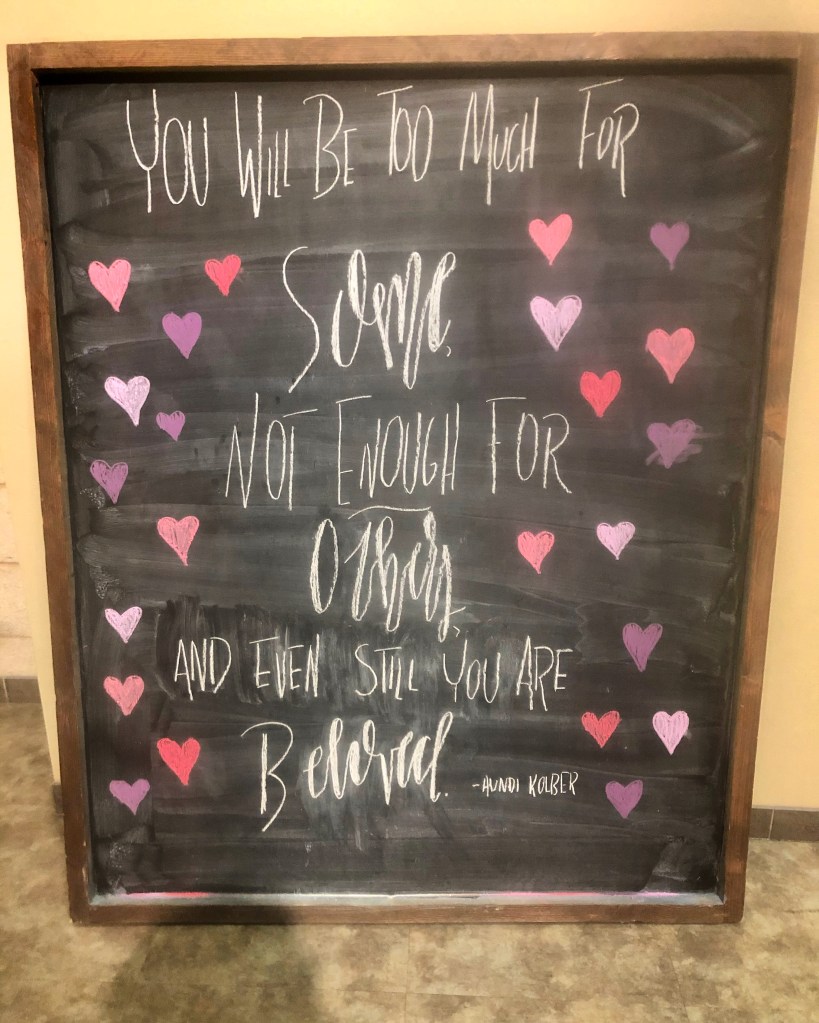 You Will Be Too Much For
Some,
Not Enough For
Others,
And Even Still You Are
Beloved.
-Aundi Kolber